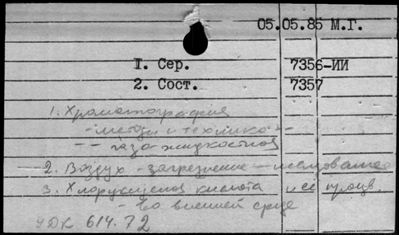 05.05.85 М.Г.
I. Сер. 7356-ИИ
2. Сост. 7357
1. Хроматография
- методы и техника -
- - газо-жидкостная
2. Воздух - загрязнение - исследование
3. Хлоруксусная кислота и ее произв.
- во внешней среде
УДК 614.72